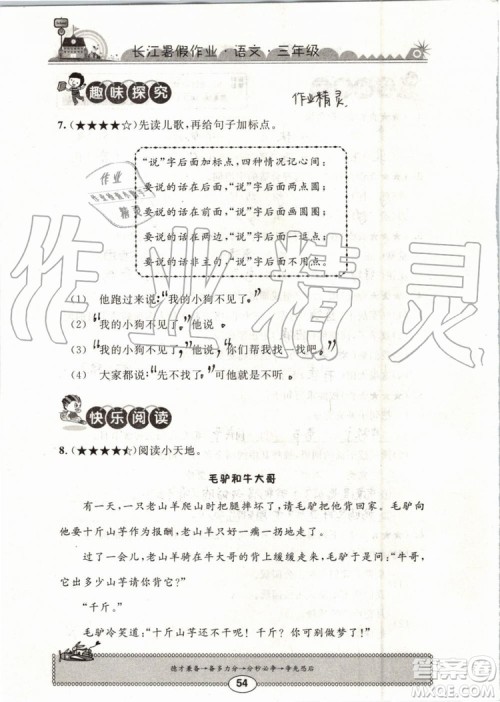 长江暑假作业·语文·三年级
趣味探究
作业精灵
7.(★★★★☆)先读儿歌,再给句子加标点。
“说”字后面加标点,四种情况记心间:
要说的话在后面,“说”字后面两点圆;
要说的话在前面,“说”字后面画圆圈;
要说的话在两边,“说”字后面一逗点;
要说的话非主句,“说”字后面不用点。
(1) 他跑过来说:“我的小狗不见了。”
(2) “我的小狗不见了。”他说。
(3) “我的小狗不见了,”他说,“你们帮我找一找吧!”
(4) 大家都说“先不找了”可他就是不听。
快乐阅读
8.(★★★★☆)阅读小天地。
毛驴和牛大哥
有一天,一只老山羊爬山时把腿摔坏了,请毛驴把他背回家。毛驴向
他要十斤山芋作为报酬,老山羊只好一瘸一拐地往前走。
过了一会儿,老山羊骑在牛大哥的背上缓缓走来。毛驴于是问:“牛哥,
它出多少山芋请你背它?”
“千斤。”
毛驴冷笑道:“十斤山芋我还不驮呢!千斤?你等着兑现吧!”
德才兼备→备多力分→分秒必争→争先恐后
54
作业精灵
作业
精灵
答案圈
MXQE.COM